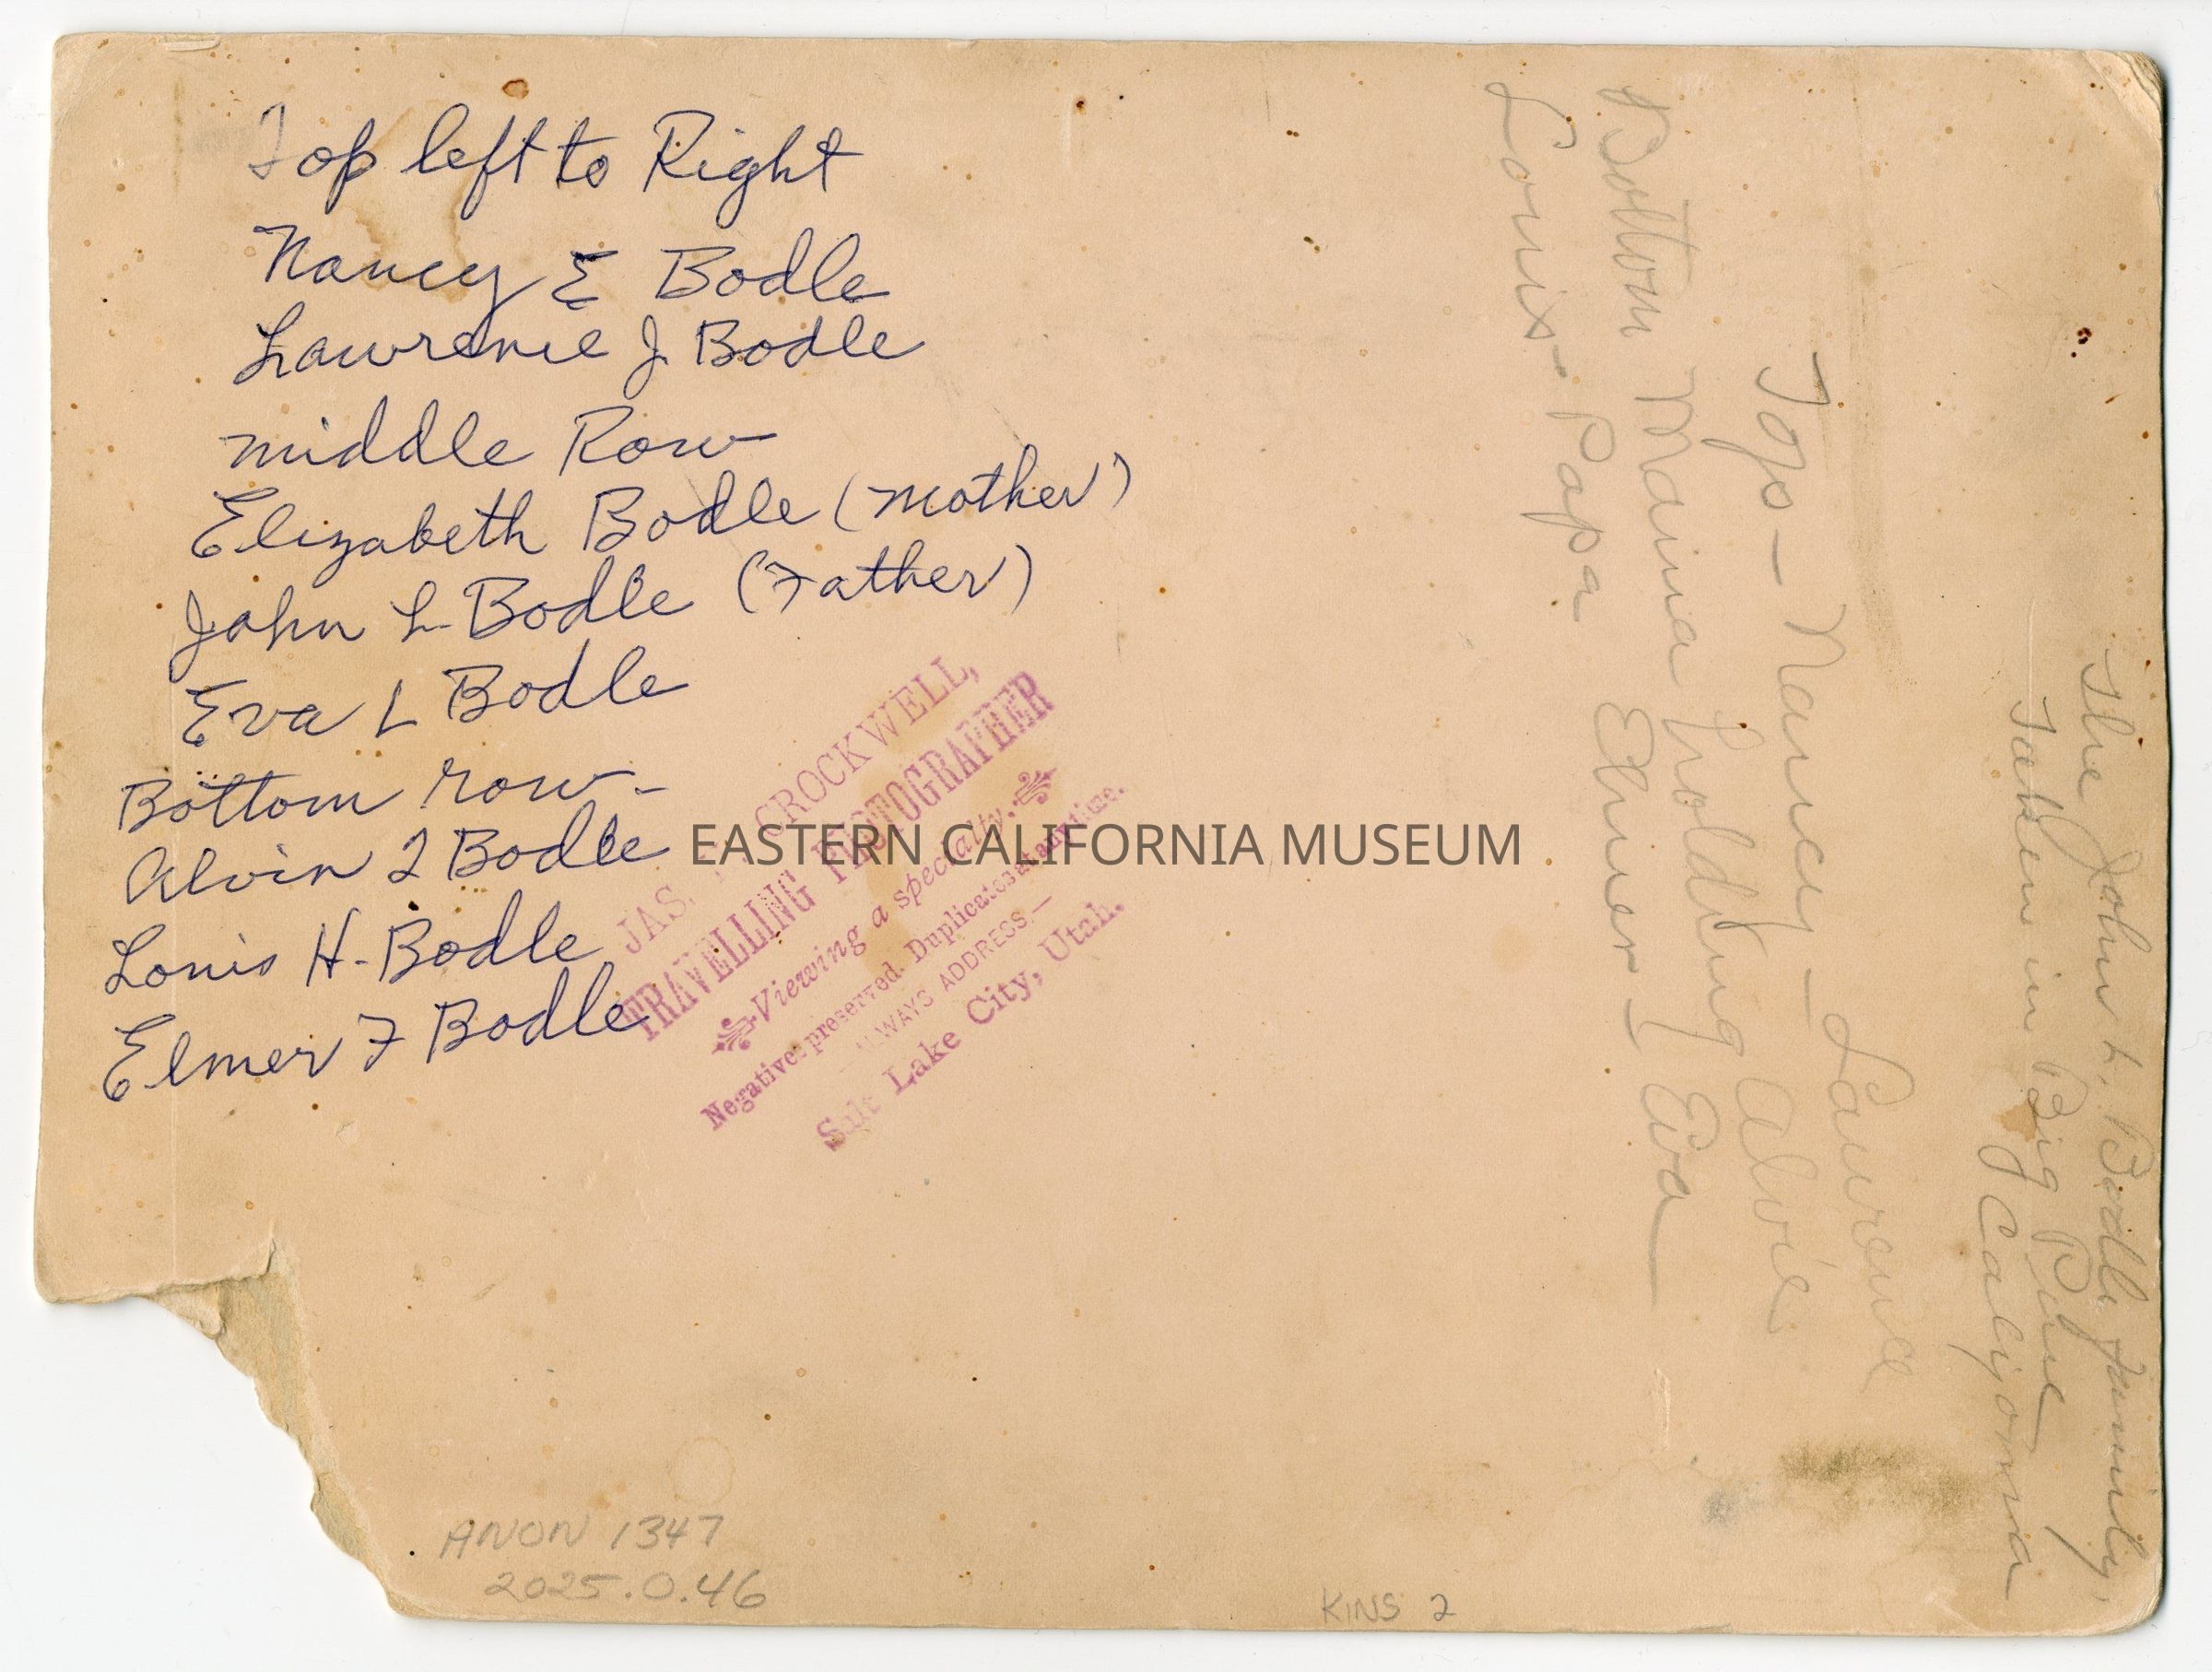 Top left to Right
Nancy E Bodle
Lawrence J. Bodle
middle Row
Elizabeth Bodle (mother)
John L. Bodle (Father)
Eva L Bodle
Bottom row-
Alvin I Bodle
Louis H. Bodle
Elmer F Bodle
JAS. CROCKWELL,
TRAVELLING PHOTOGRAPHER
Viewing a specialty.
Negatives preserved. Duplicates at any time.
ALWAYS ADDRESS,—
Salt Lake City, Utah.
EASTERN CALIFORNIA MUSEUM
The John L. Bodle family,
Taken in Big Pine
California
Top - Nancy - Laurence
Bottom Mama holding Alvie
Louis - Papa Elmer - Eva
ANON 1347
2025.0.46
KINS 2